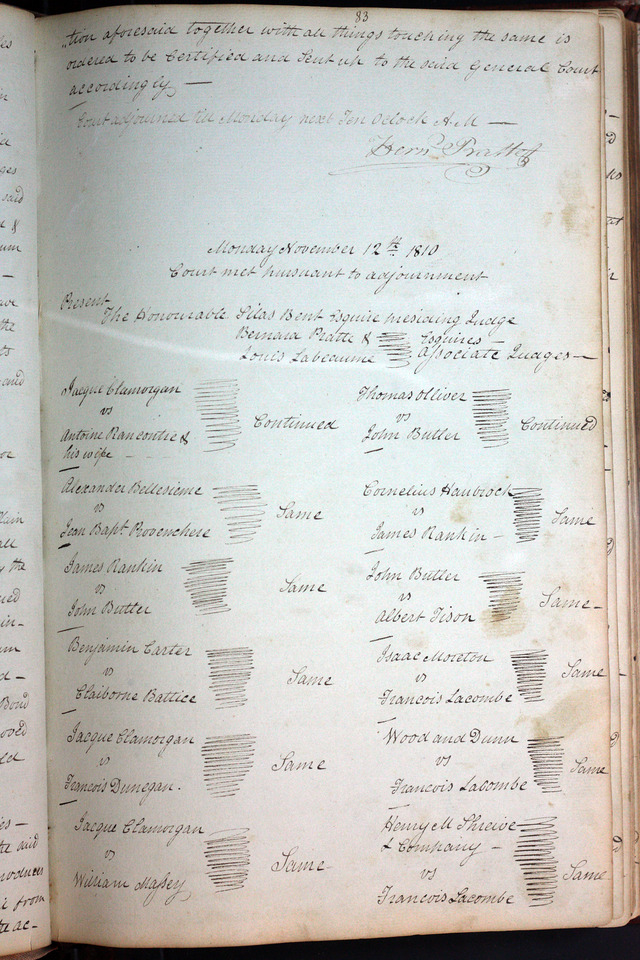 83
"tion aforesaid together with all things touching the same is
ordered to be Certified and Sent up to the said General Court
accordingly —
Court adjourned till Monday next Ten Oclock A.M —
Bern.d Pratte
Monday November 12th 1810
Court met pursuant to adjournment
Present
The Honourable Silas Bent Esquire presiding Judge
Bernard Pratte & Esquires —
Louis Labeaume Associate Judges —
Jacque Clamorgan
vs
Antoine Rancontre &
his wife
Continued
Thomas Olliver
vs
John Butler
Continued
Alexander Bellesieme
vs
Jean Bapt. Provenchere
Same
Cornelius Haubrock
vs
James Rankin —
Same
James Rankin
vs
John Butler
Same
John Butler
vs
Albert Tison
Same —
Benjamin Carter
vs
Claiborne Battice
Same
Isaac Moreton
vs
Francois Lacombe
Same
Jacque Clamorgan
vs
Francois Dunegan.
Same
Wood and Dunn
vs
Francois Lacombe
Same
Jacque Clamorgan
vs
William Massey
Same
Henry M Shreive
& Company —
vs
Francois Lacombe
Same